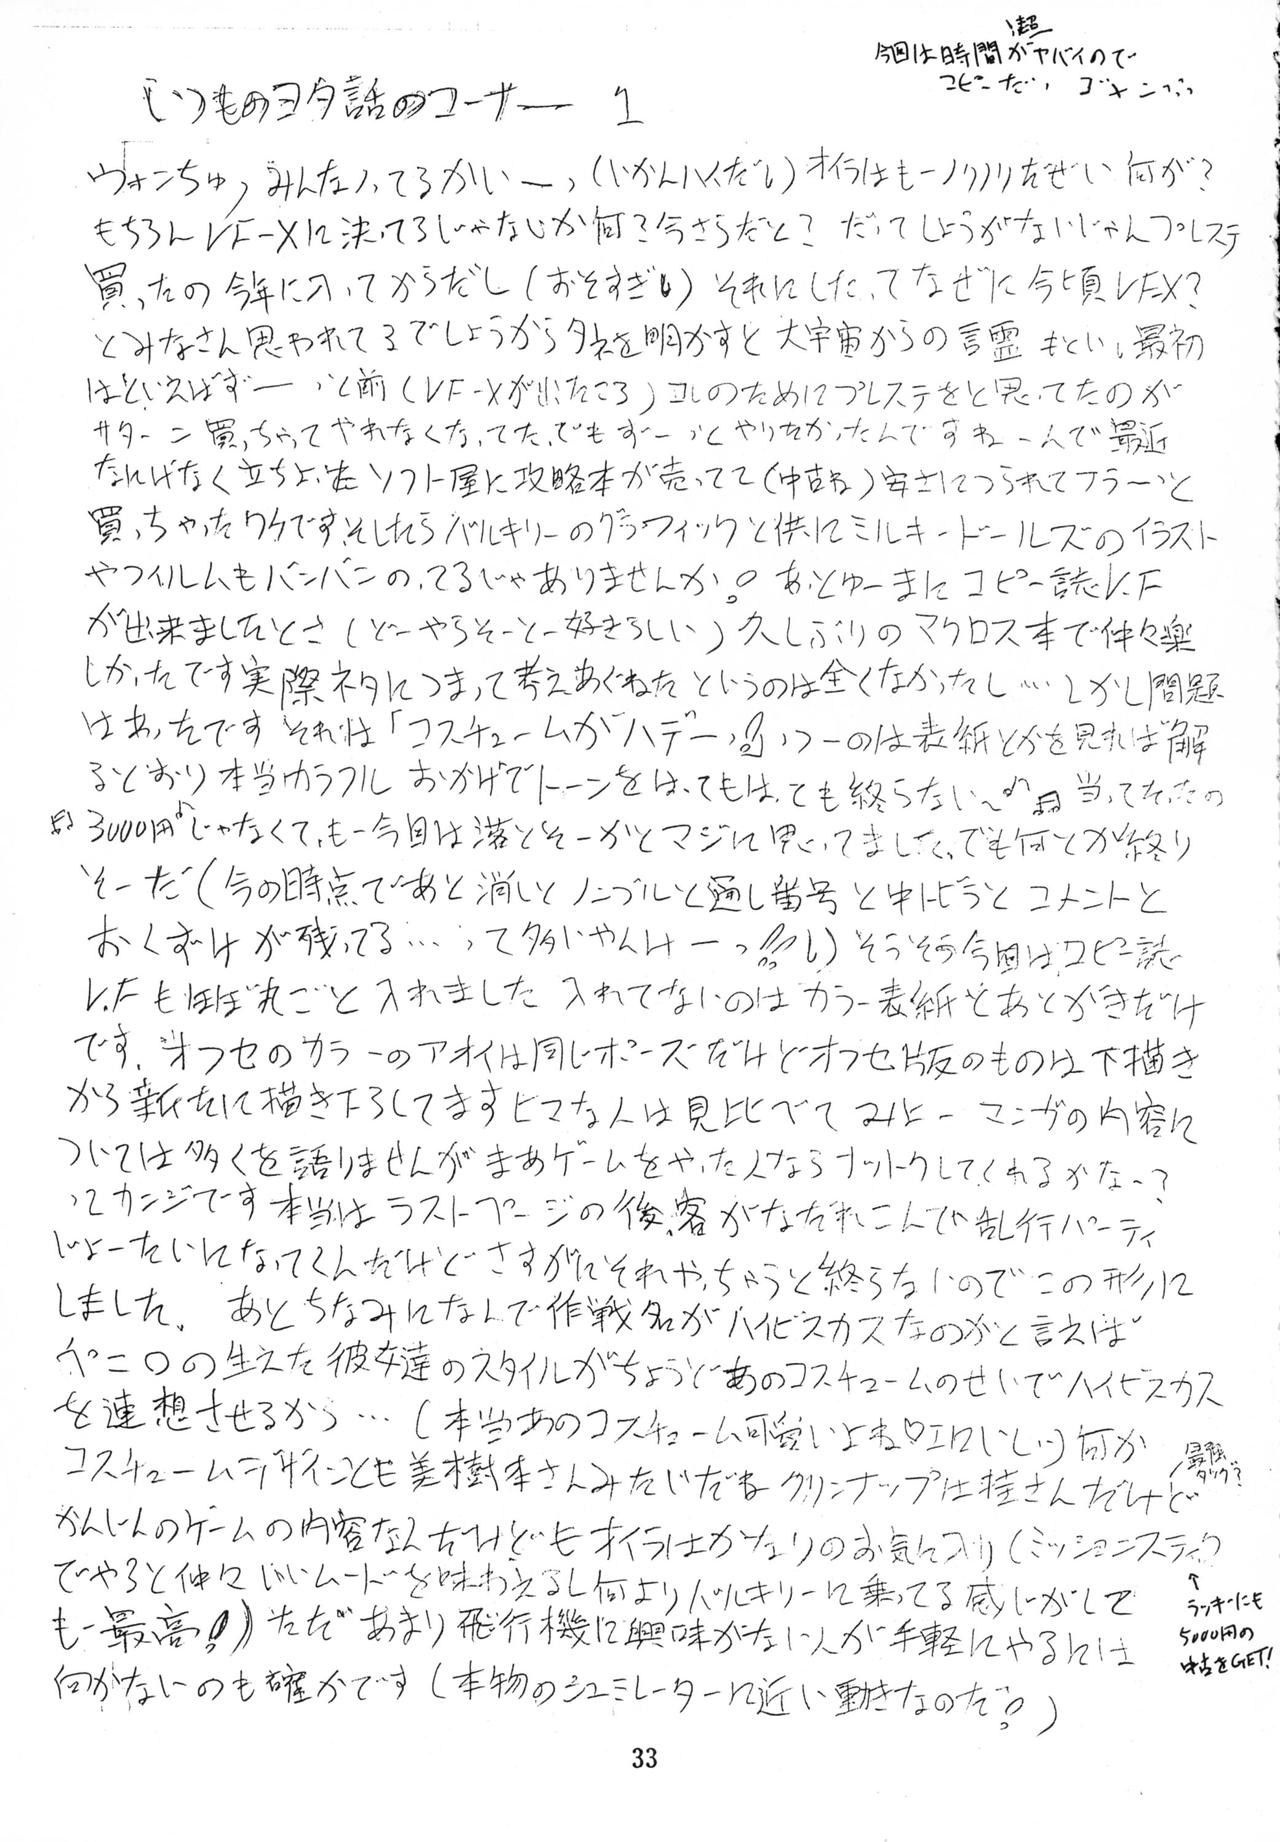 今回は時間が超ヤバイので
コピーだい ゴメンブゥ
いつものヨタ話のコーナー 1
みんなノってるかいーっ(いかんハイだい)オイラはもーノリノリだぜい 何が?
もちろんVF-Xに決ってるじゃないか何?今さらだと? だってしょうがないじゃんプレステ
買ったの今年に入ってからだし(おそすぎい)それにしたってなぜに今頃VFX?
とみなさん思われてるでしょうからタネを明かすと大宇宙からの言霊 もとい。最初
はといえばずーーっと前(VF-Xが出たころ)コレのためにプレステをと思ってたのが
サターン買っちゃってやれなくなってた、でもずーっとやりたかったんですねーんで最近
なにげなく立ちよった ソフト屋に攻略本が売ってて(中古ね)安さにつられてフラーっと
買っちゃったワケです、そしたらバルキリーのグラフィックと供にミルキードールズのイラスト
やフィルムもバンバンのってるじゃありませんか!。 あっとゆーまに コピー誌V.F
が出来ましたとさ(どーやらそーとー好きらしい)久しぶりのマクロス本で仲々楽
しかったです実際ネタにつまって考えあぐねたというのは全くなかったし… しかし問題
はあったです それは「コスチュームがハデーっ!!」っつーのは表紙とかを見れば解
るとおり本当カラフル おかげでトーンをはってもはっても終らない〜♪♫ 当ってたったの
♫3000円♪じゃなくて、もー今回は落とそーかとマジに思ってました、でも何とか終り
そーだ(今の時点であと消しとノンブルと通し番号と中トビラとコメントと
おくずけが残ってる…って多いやんけーっ!!い)そうそう今回はコピー誌
V.Fもほぼ丸ごと入れました 入れてないのはカラー表紙とあとがきだけ
です、オフセのカラーのアオイは同じポーズだけどオフセ版のものは下描き
から新たに描き下ろしてますヒマな人は見比べてみよー マンガの内容に
ついては多くを語りませんがまあゲームをやった人ならナットクしてくれるかなー?
ってカンジです本当はラストページの後、客がなだれこんで乱行パーティ
じょーたいになってくんだけど さすがにそれやっちゃうと終らないのでこの形に
しました。 あとちなみになんで作戦名がハイビスカスなのかと言えば
ペニ〇の生えた彼女達のスタイルがちょうどあのコスチュームのせいでハイビスカス
を連想させるから…(本当あのコスチューム可愛いよね♡エロいしい)何か
コスチュームデザインとも美樹本さんみたいだね クリンナップは桂さんだけど
最強タッグ?
かんじんのゲームの内容なんだけどもオイラはかなりのお気に入り(ミッションスティック
でやると仲々いいムードを味わえるし何よりバルキリーに乗ってる感じがして
も一最高!)ただあまり飛行機に興味がない人が手軽にやるには
向かないのも確かです(本物のシュミレーターに近い動きなのだ!。)
↑
ラッキーにも
5000円の
中古をGET!
33